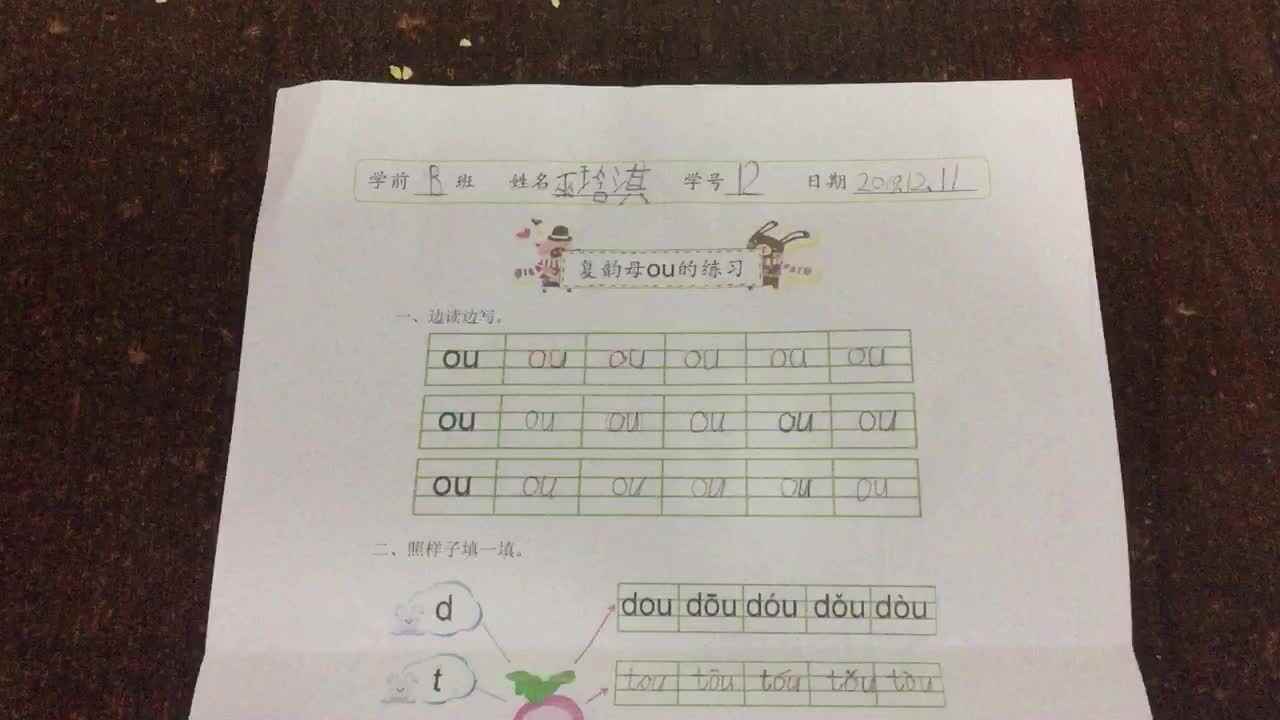 学前 B 班 姓名 巫琀淇 学号 12 日期 2018.12.11
复韵母ou的练习
一、边读边写。
ou ou ou ou ou ou
ou ou ou ou ou ou
ou ou ou ou ou ou
二、照样子填一填。
d dou dōu dóu dǒu dòu
t tou tōu tóu tǒu tòu